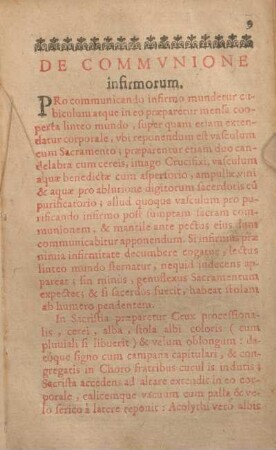 9
DE COMMVNIONE
infirmorum.
PRo communicando infirmo mundetur cu-
biculum atque in eo præparetur mensa coo-
perta linteo mundo, super quam etiam exten-
datur corporale, vbi reponendum est vasculum
cum Sacramento; præparentur etiam duo can-
delabra cum cereis, imago Crucifixi, vasculum
aquæ benedictæ cum aspersorio, ampulla vini
& aquæ pro ablutione digitorum sacerdotis cũ
purificatorio; aliud quoque vasculum pro pu-
rificando infirmo post sumptam sacram com-
munionem, & mantile ante pectus eius dum
communicabitur apponendum. Si infirmum præ
nimia infirmitate decumbere cogatur, lectus
linteo mundo sternatur, nequid indecens ap-
pareat; sin minus, genuflexus Sacramentum
expectet; & si sacerdos fuerit, habeat stolam
ab humero pendentem.
In Sacristia præparetur Crux processiona-
lis, cerei, alba, stola albi coloris ( cum
pluviali si libuerit) & velum oblongum: da-
tóque signo cum campana capitulari, & con-
gregatis in Choro fratribus cucullis indutis;
Sacrista accedens ad altare extendit in eo cor-
porale, calicemque vacuum cum palla & ve-
lo serico à latere reponit: Acolythi verò albis